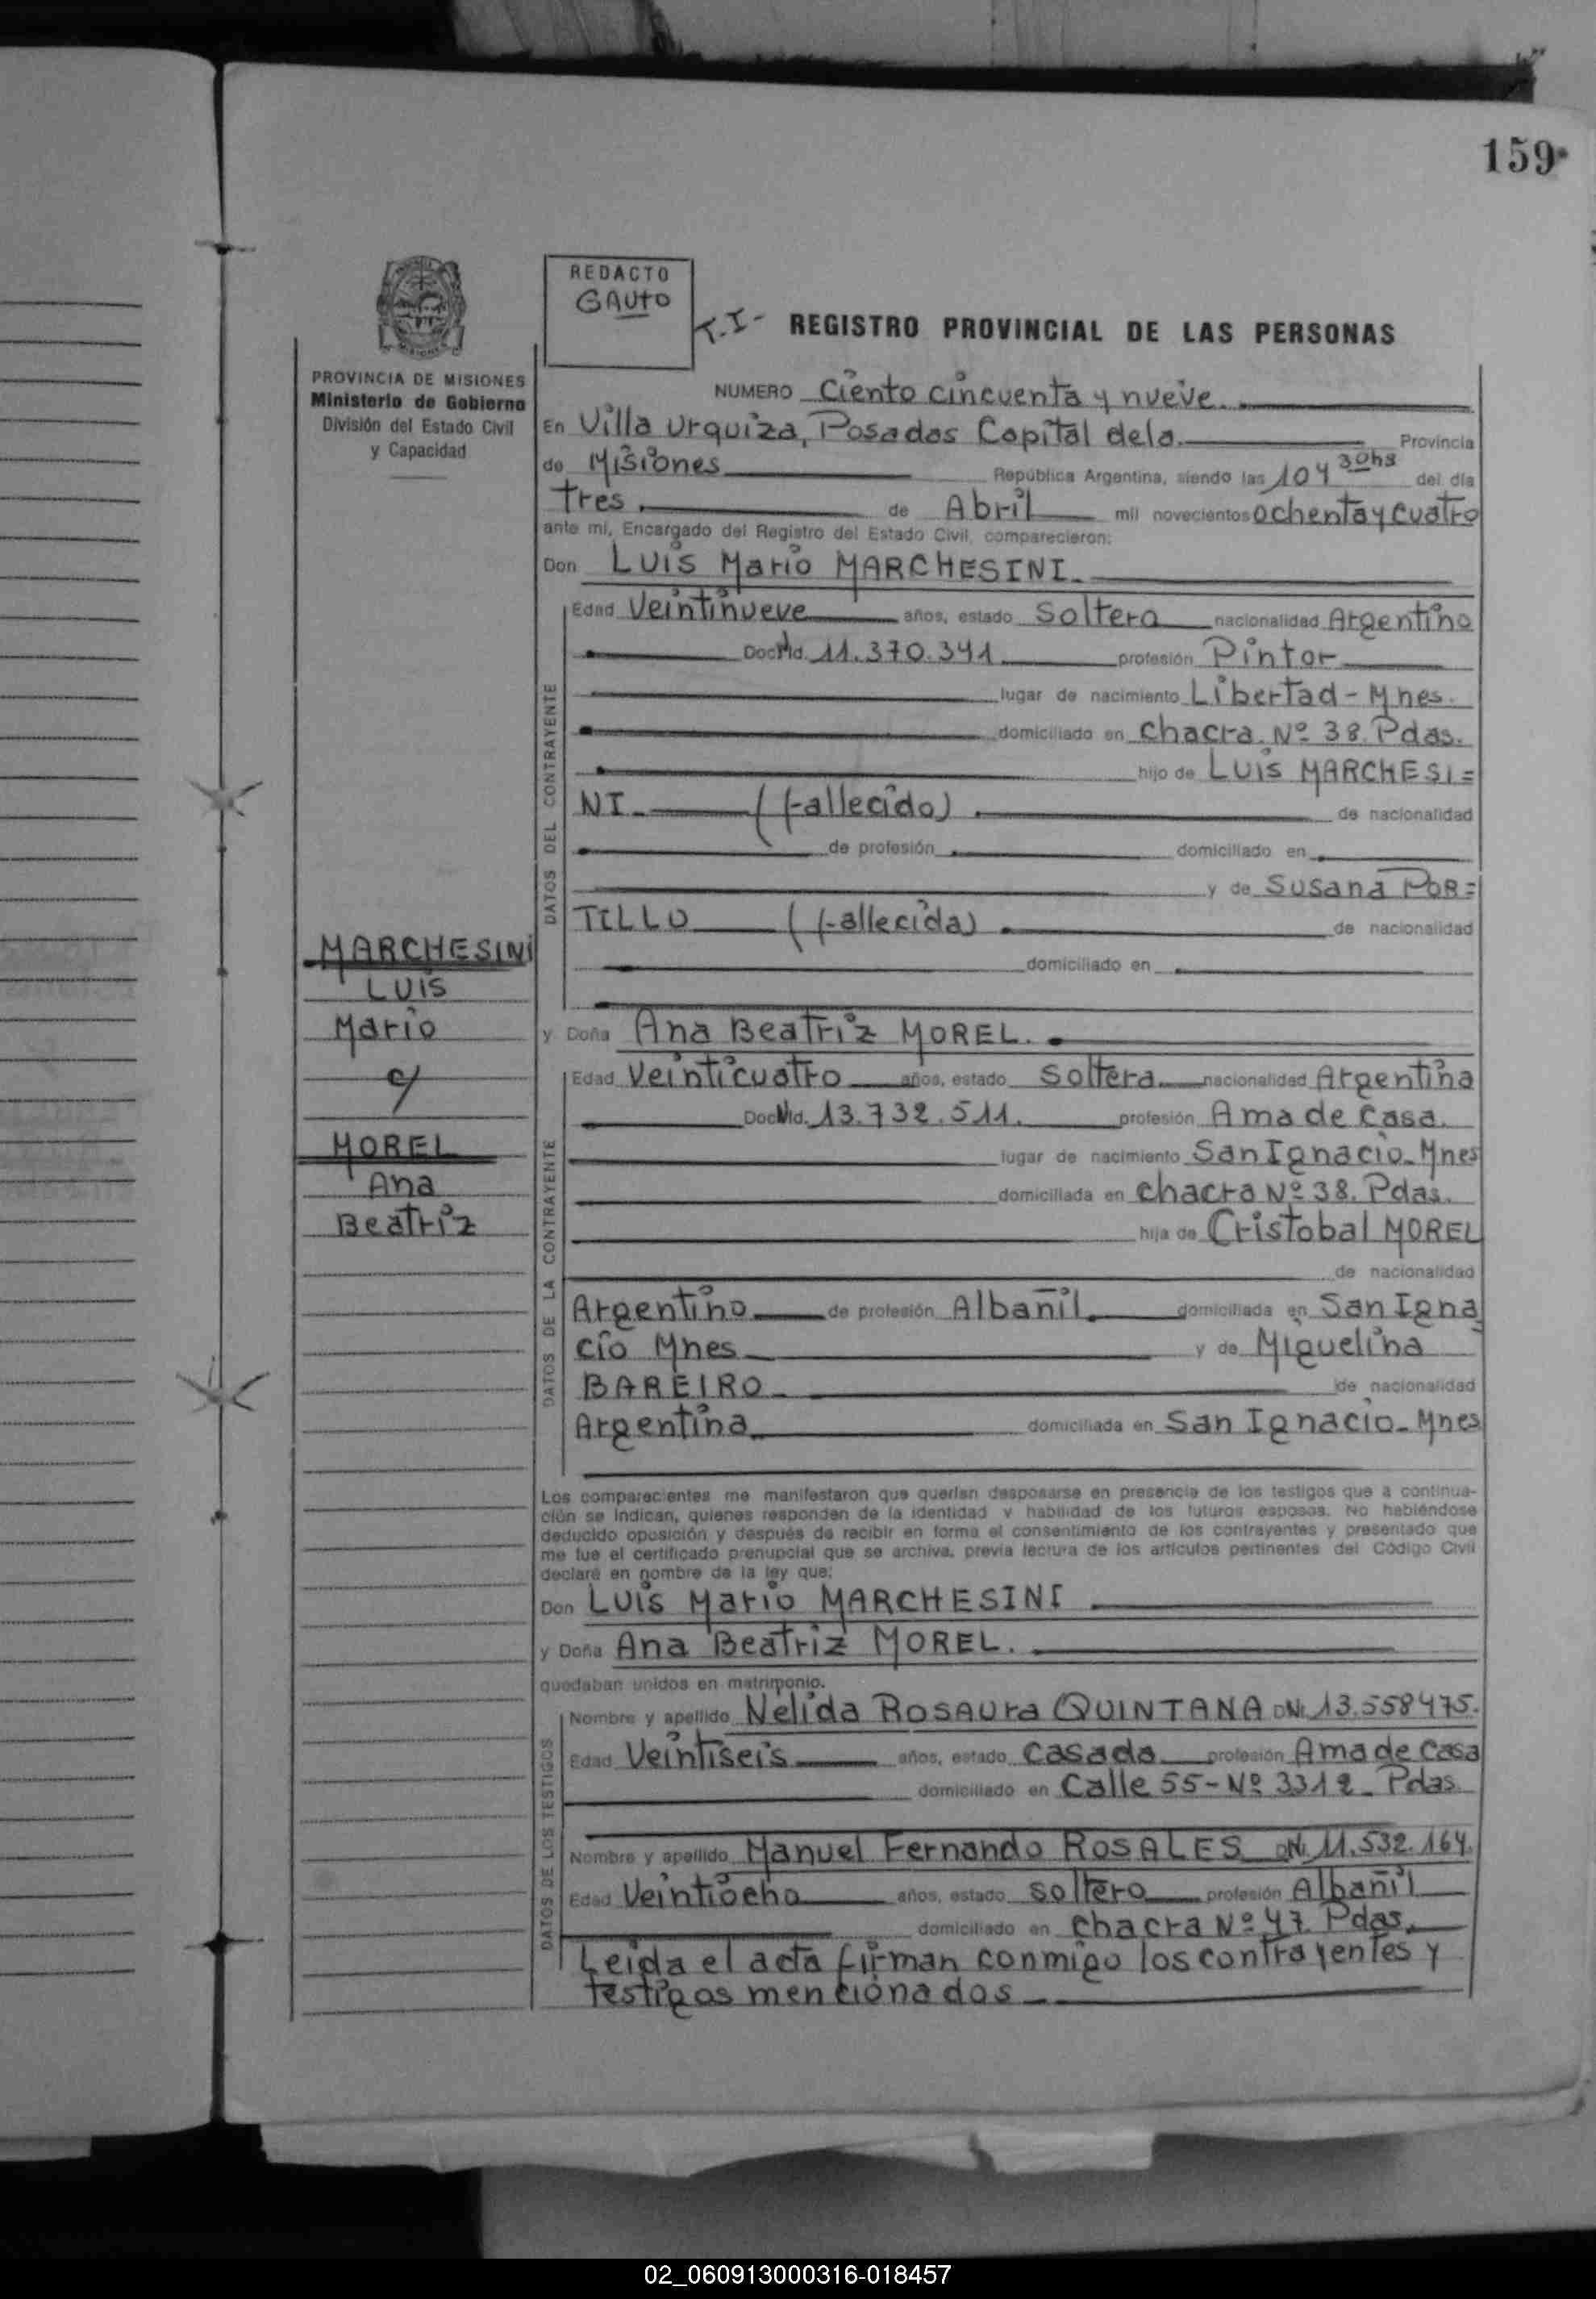 159
REDACTO
GAUTO
T.I- REGISTRO PROVINCIAL DE LAS PERSONAS
PROVINCIA DE MISIONES
Ministerio de Gobierno
División del Estado Civil
y Capacidad
NUMERO Ciento cincuenta y nueve.
En Villa Urquiza, Posadas Capital de la. Provincia
de Misiones República Argentina, siendo las 10 y 30hs del día
tres. de Abril mil novecientos ochenta y cuatro
ante mí, Encargado del Registro del Estado Civil, comparecieron:
Don Luis Mario MARCHESINI.
DATOS DEL CONTRAYENTE
Edad Veintinueve años, estado Soltero nacionalidad Argentino
Doc. Nid. 11.370.341 profesión Pintor
lugar de nacimiento Libertad - Mnes.
domiciliado en Chacra. Nº 38. Pdas.
hijo de Luis MARCHESI=
NI. (fallecido) de nacionalidad
de profesión domiciliado en
y de Susana POR=
TILLO (fallecida) de nacionalidad
domiciliado en
MARCHESINI
Luis
Mario
c/
MOREL
Ana
Beatriz
y Doña Ana Beatriz MOREL.
DATOS DE LA CONTRAYENTE
Edad Veinticuatro años, estado Soltera nacionalidad Argentina
Doc. Nid. 13.732.511. profesión Ama de Casa.
lugar de nacimiento San Ignacio - Mnes
domiciliada en Chacra Nº 38. Pdas.
hija de Cristobal MOREL
de nacionalidad
Argentino de profesión Albañil. domiciliada en San Igna
cio Mnes y de Miguelina
BAREIRO de nacionalidad
Argentina domiciliada en San Ignacio - Mnes
Los comparecientes me manifestaron que querían desposarse en presencia de los testigos que a continua-
ción se indican, quienes responden de la identidad y habilidad de los futuros esposos. No habiéndose
deducido oposición y después de recibir en forma el consentimiento de los contrayentes y presentado que
me fue el certificado prenupcial que se archiva, previa lectura de los artículos pertinentes del Código Civil
declaré en nombre de la ley que:
Don Luis Mario MARCHESINI
y Doña Ana Beatriz MOREL.
quedaban unidos en matrimonio.
DATOS DE LOS TESTIGOS
Nombre y apellido Nelida Rosaura QUINTANA DNI. 13.558475.
Edad Veintiseis años, estado Casada profesión Ama de Casa
domiciliado en Calle 55 - Nº 3312 - Pdas.
Nombre y apellido Manuel Fernando ROSALES DNI. 11.532.164.
Edad Veintiocho años, estado soltero profesión Albañil
domiciliado en Chacra Nº 47. Pdas.
Leida el acta firman conmigo los contrayentes y
testigos mencionados
02_060913000316-018457